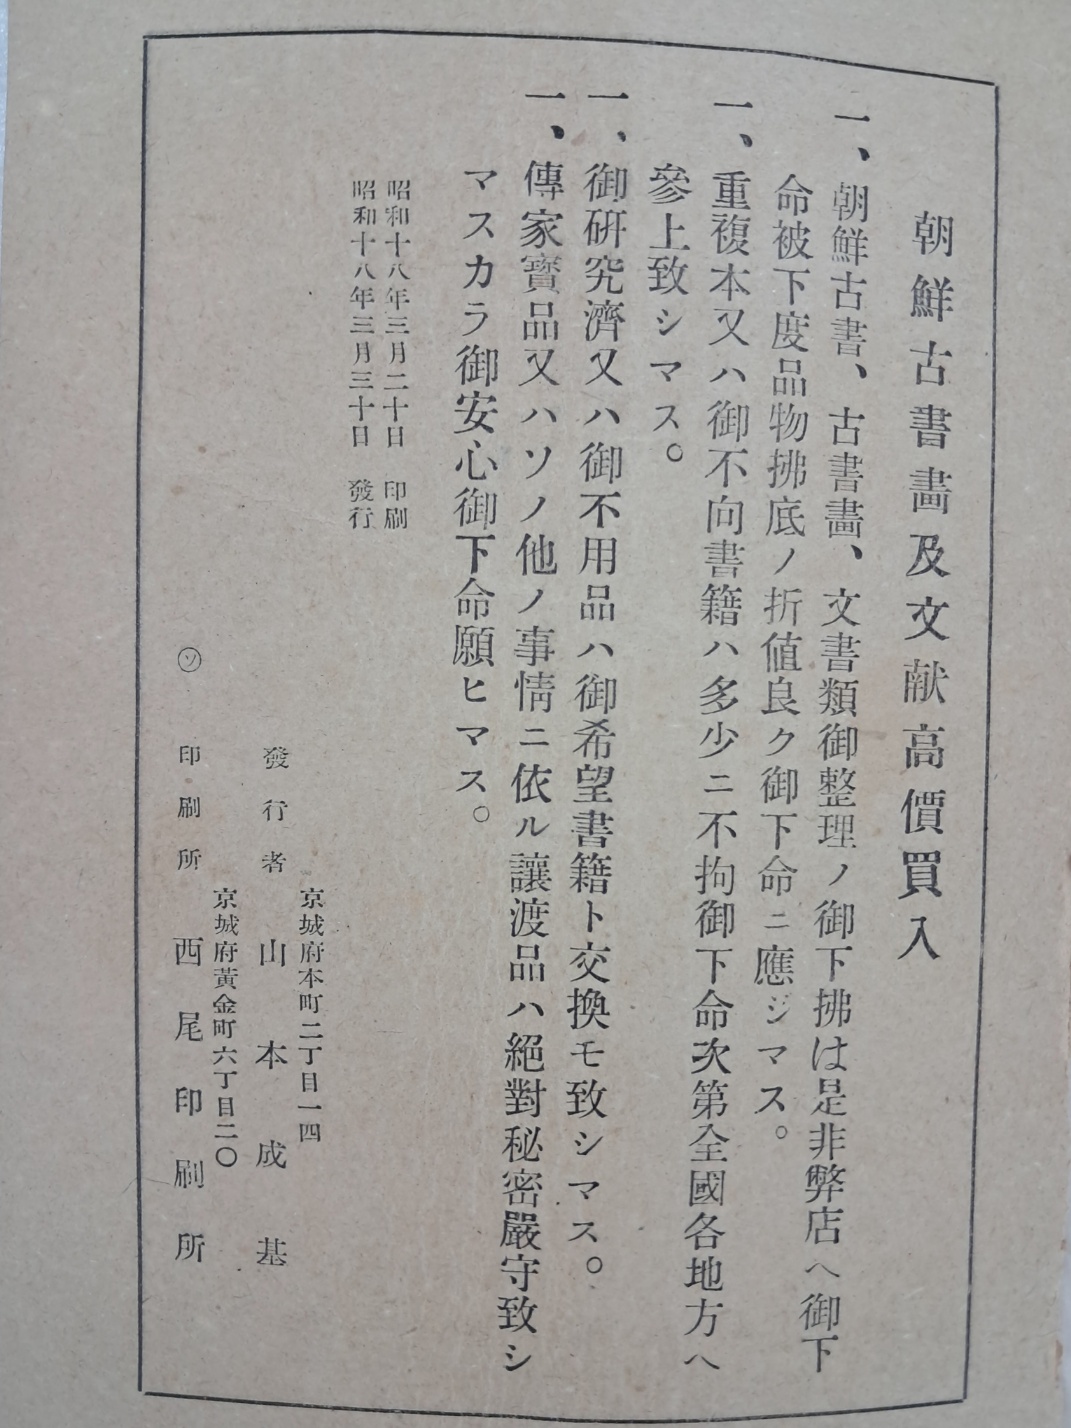 朝鮮古書畵及文献高價買入
一、朝鮮古書、古書畵、文書類御整理ノ御下拂は是非弊店ヘ御下
命被下度品物拂底ノ折値良ク御下命ニ應ジマス。
一、重複本又ハ御不向書籍ハ多少ニ不拘御下命次第全國各地方ヘ
參上致シマス。
一、御硏究濟又ハ御不用品ハ御希望書籍ト交換モ致シマス。
一、傳家寶品又ハソノ他ノ事情ニ依ル讓渡品ハ絕對秘密嚴守致シ
マスカラ御安心御下命願ヒマス。
昭和十八年三月二十日 印刷
昭和十八年三月三十日 發行
京城府本町二丁目一四
發行者 山本成基
京城府黃金町六丁目二〇
㋞ 印刷所 西尾印刷所